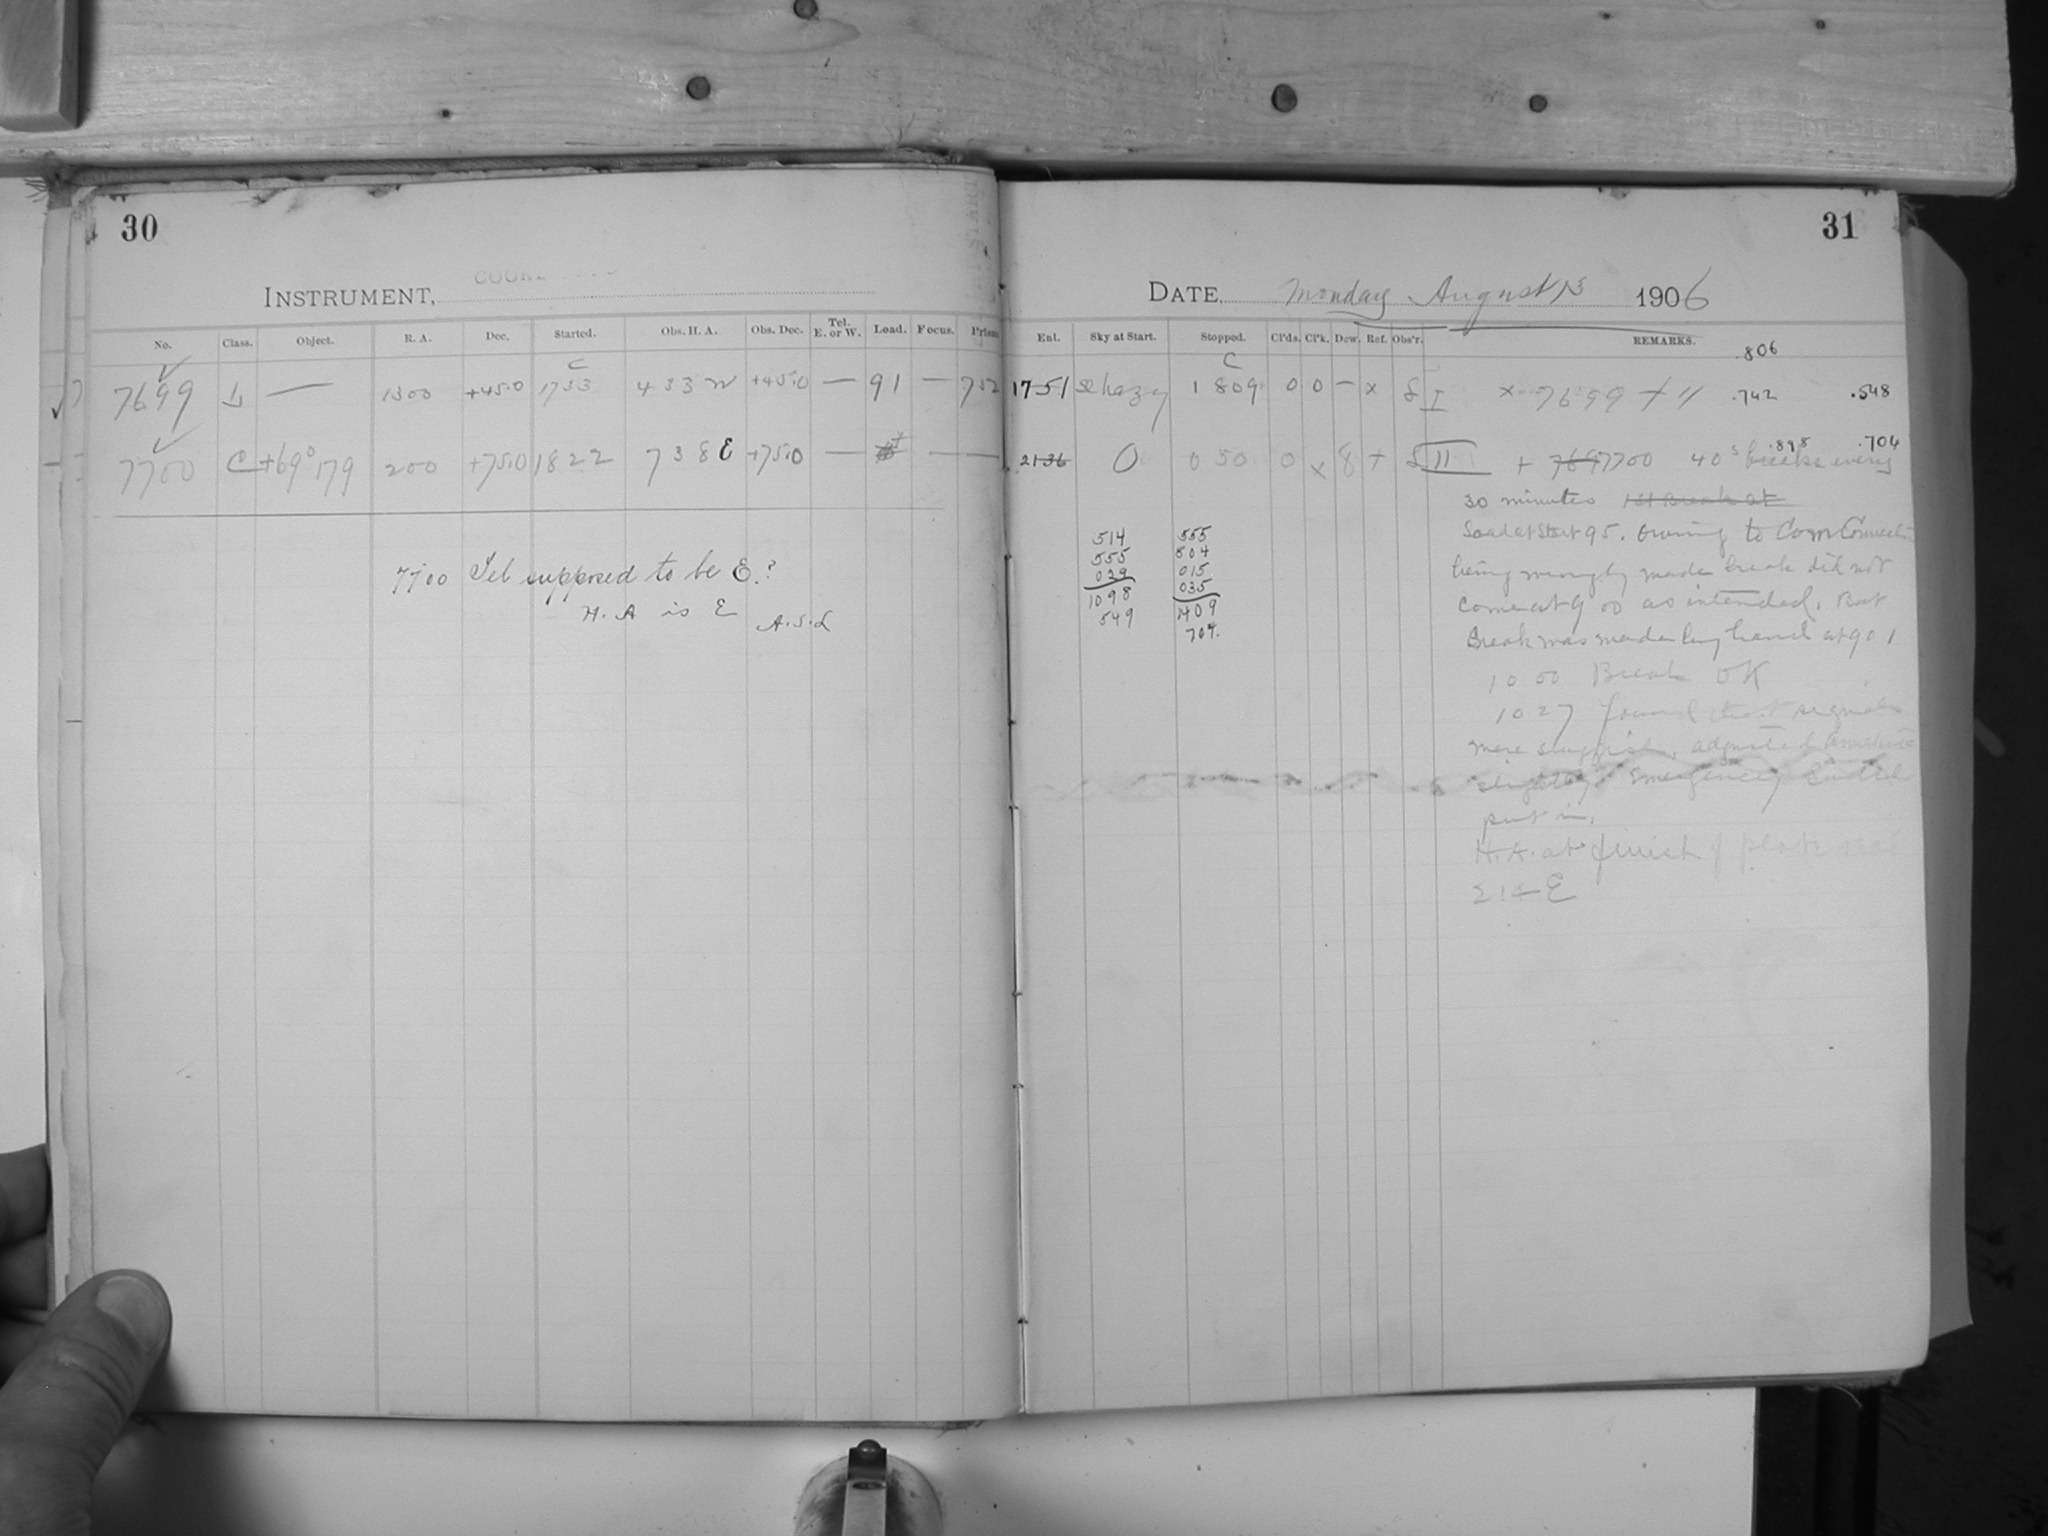 30
INSTRUMENT,
No. Class. Object. R. A. Dec. Started. Obs. H. A. Obs. Dec. Tel. E. or W. Load. Focus. Prism
C
7699 L — 1300 +45.0 1753 4 33 W +45.0 — 91 —
7700 C +69° 179 200 +75.0 1822 7 38 E +75.0 — — —
7700 Tel supposed to be E.?
H. A is E A.S.L
31
DATE, Monday August 13 1906
Enl. Sky at Start. Stopped. Cl'ds. Cl'k. Dew. Ref. Obs'r. REMARKS.
.806
C
1751 hazy 1809 0 0 — x S I x 7699 + 11 .742 .548
.898 .704
2136 0 0 50 0 x 8 + S II + 7697 7700 40s breaks every
30 minutes 1st Break at
Load at Start 95. Owing to Com Connection
being wrongly made break did not
come at 9 00 as intended. But
Break was made by hand at 9 01
10 00 Break OK
10 27 found that signals
were sluggish, adjusted
slightly. emergency
put in.
H.A. at finish of plate
2 14 E
514
555
029
1098
549
555
804
015
035
1409
704.